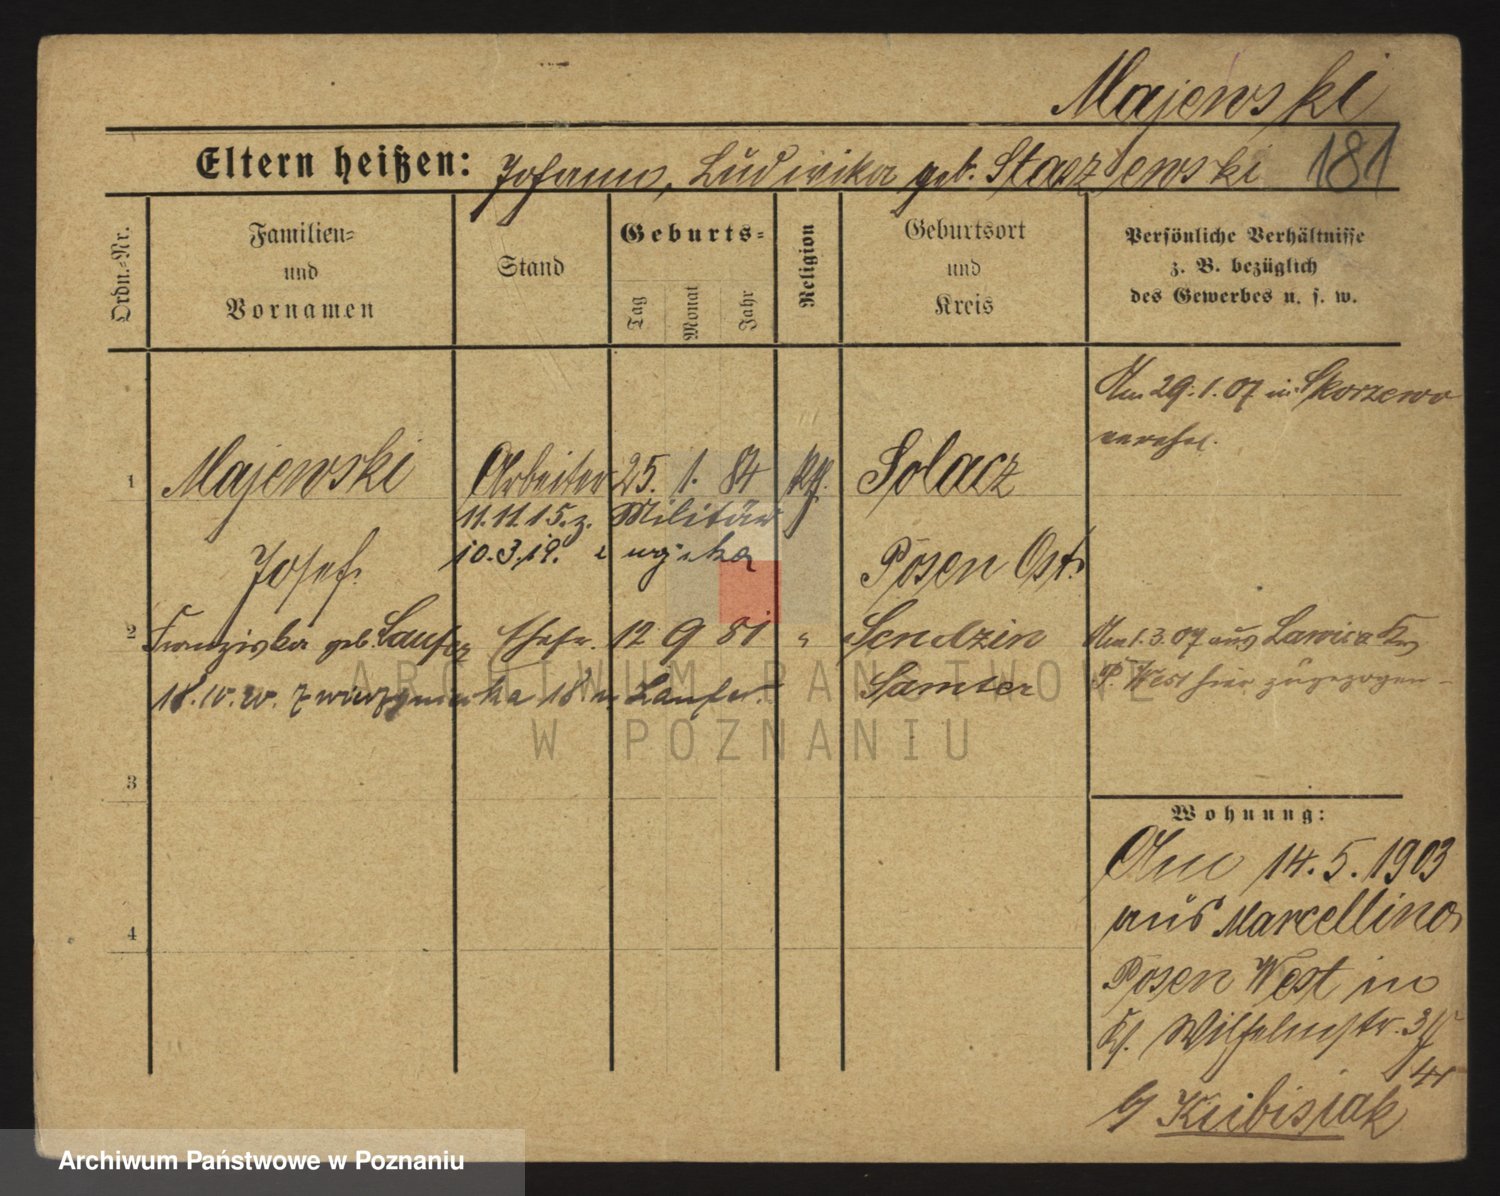 Majewski
Eltern heißen: Johann, Ludwika geb. Staszewski 181
Ordn.=Nr.
Familien=
und
Vornamen
Stand
Geburts=
Tag
Monat
Jahr
Religion
Geburtsort
und
Kreis
Persönliche Verhältnisse
z. B. bezüglich
des Gewerbes u. s. w.
Am 29.1.07 in Skorzewo
verehel.
1 Majewski Arbeiter 25. 1. 84 kth. Solacz
11.11.15. z. Militär
Josef. 10.3.19. Posen Ost.
2 Franziska geb. Laufer Ehefr. 12 9 81 " Sendzin
Am 1.3.07 aus Lawica Krs
18. 18 Laufer. Samter
P. West hier zugezogen
3
4
Wohnung:
Am 14.5.1903
aus Marcellino
Posen West in
Kl. Wilhelmstr. 3
b/ Kubisiak
ARCHIWUM PAŃSTWOWE
W POZNANIU
Archiwum Państwowe w Poznaniu